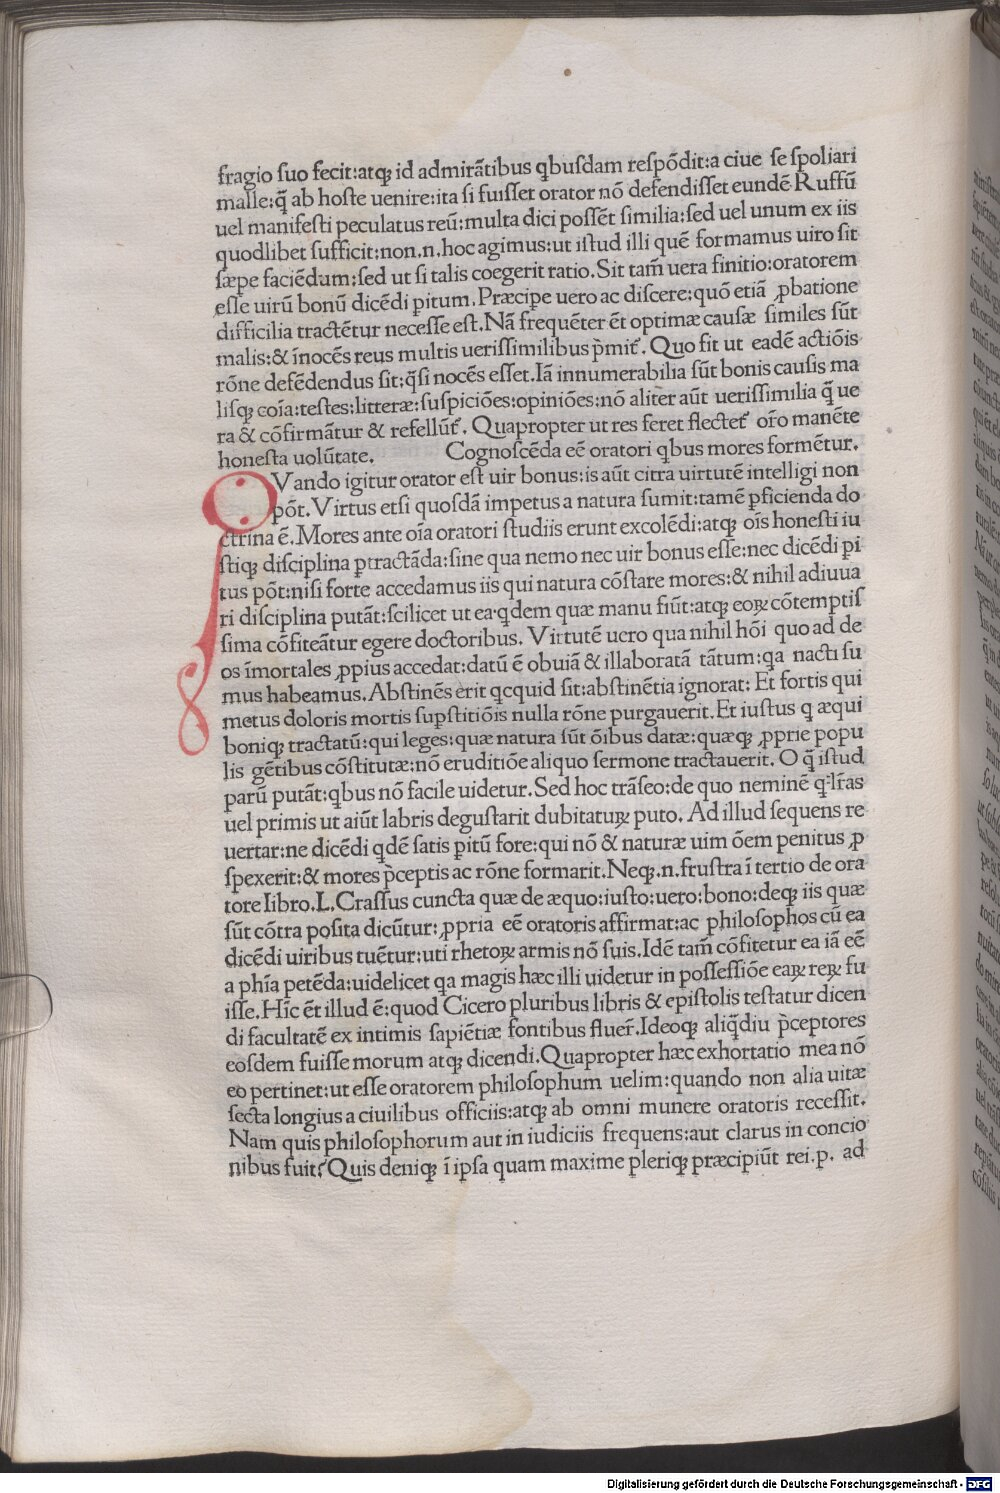 fragio ſuo fecit:atqꝫ id admirãtibus qbuſdam reſpõdit:a ciue ſe ſpoliari
malle:q̃ ab hoſte uenire:ita ſi fuiſſet orator nõ defendiſſet eundẽ Ruffũ
uel manifeſti peculatus reũ:multa dici poſſẽt ſimilia:ſed uel unum ex iis
quodlibet ſufficit:non.n.hoc agimus:ut iſtud illi quẽ formamus uiro ſit
ſæpe faciẽdum:ſed ut ſi talis coegerit ratio.Sit tam̃ uera finitio:oratorem
eſſe uirũ bonũ dicẽdi ꝑitum.Præcipe uero ac diſcere:quõ etiã ꝓbatione
difficilia tractẽtur neceſſe eſt.Nã frequẽter ẽt optimæ cauſæ ſimiles ſũt
malis:& ĩnocẽs reus multis ueriſſimilibus p̃mit᷑. Quo fit ut eadẽ actiõis
rõne defẽdendus ſit:q̃ſi nocẽs eſſet.Iã innumerabilia ſũt bonis cauſis ma
liſqꝫ coĩa:teſtes:litteræ:ſuſpiciões:opiniões:nõ aliter aũt ueriſſimilia q̃ ue
ra & cõfirmãtur & refellũt᷑. Quapropter ut res feret flectet᷑ or̃o manẽte
honeſta uolũtate. Cognoſcẽda eẽ oratori qbus mores formẽtur.
QVando igitur orator eſt uir bonus:is aũt citra uirtutẽ intelligi non
põt.Virtus etſi quoſdã impetus a natura ſumit:tamẽ ꝑficienda do
ctrina ẽ.Mores ante oĩa oratori ſtudiis erunt excolẽdi:atqꝫ oĩs honeſti iu
ſtiqꝫ diſciplina ꝑtractãda:ſine qua nemo nec uir bonus eſſe:nec dicẽdi ꝑi
tus põt:niſi forte accedamus iis qui natura cõſtare mores:& nihil adiuua
ri diſciplina putãt:ſcilicet ut ea.qdem quæ manu fiũt:atqꝫ eoꝝ cõtemptiſ
ſima cõfiteãtur egere doctoribus. Virtutẽ uero qua nihil hõi quo ad de
os ĩmortales ꝓpius accedat:datũ ẽ obuiã & illaboratã tãtum:qa nacti ſu
mus habeamus.Abſtinẽs erit qcquid ſit:abſtinẽtia ignorat: Et fortis qui
metus doloris mortis ſuꝑſtitiõis nulla rõne purgauerit.Et iuſtus q æqui
boniqꝫ tractatũ:qui leges:quæ natura ſũt õibus datæ:quæqꝫ ꝓprie popu
lis gẽtibus cõſtitutæ:nõ eruditiõe aliquo ſermone tractauerit. O q̃ iſtud
parũ putãt:qbus nõ facile uidetur.Sed hoc trãſeo:de quo neminẽ q lr̃as
uel primis ut aiũt labris deguſtarit dubitatuꝝ puto. Ad illud ſequens re
uertar:ne dicẽdi qdẽ ſatis ꝑitũ fore:qui nõ & naturæ uim õem penitus ꝓ
ſpexerit:& mores p̃ceptis ac rõne formarit.Neqꝫ.n.fruſtra ĩ tertio de ora
tore libro.L.Craſſus cuncta quæ de æquo:iuſto:uero:bono:deqꝫ iis quæ
ſũt cõtra poſita dicũtur:ꝓpria eẽ oratoris affirmat:ac philoſophos cũ ea
dicẽdi uiribus tuẽtur:uti rhetoꝝ armis nõ ſuis.Idẽ tam̃ cõfitetur ea iã eẽ
a phĩa petẽda:uidelicet qa magis hæc illi uidetur in poſſeſſiõe eaꝝ reꝝ fu
iſſe.Hĩc ẽt illud ẽ:quod Cicero pluribus libris & epiſtolis teſtatur dicen
di facultatẽ ex intimis ſapiẽtiæ fontibus fluer̃.Ideoqꝫ aliq̃diu p̃ceptores
eoſdem fuiſſe morum atqꝫ dicendi.Quapropter hæc exhortatio mea nõ
eo pertinet:ut eſſe oratorem philoſophum uelim:quando non alia uitæ
ſecta longius a ciuilibus officiis:atqꝫ ab omni munere oratoris receſſit.
Nam quis philoſophorum aut in iudiciis frequens:aut clarus in concio
nibus fuit?Quis deniqꝫ ĩ ipſa quam maxime pleriqꝫ præcipiũt rei.p. ad
Digitalisierung gefördert durch die Deutsche Forschungsgemeinschaft - DFG